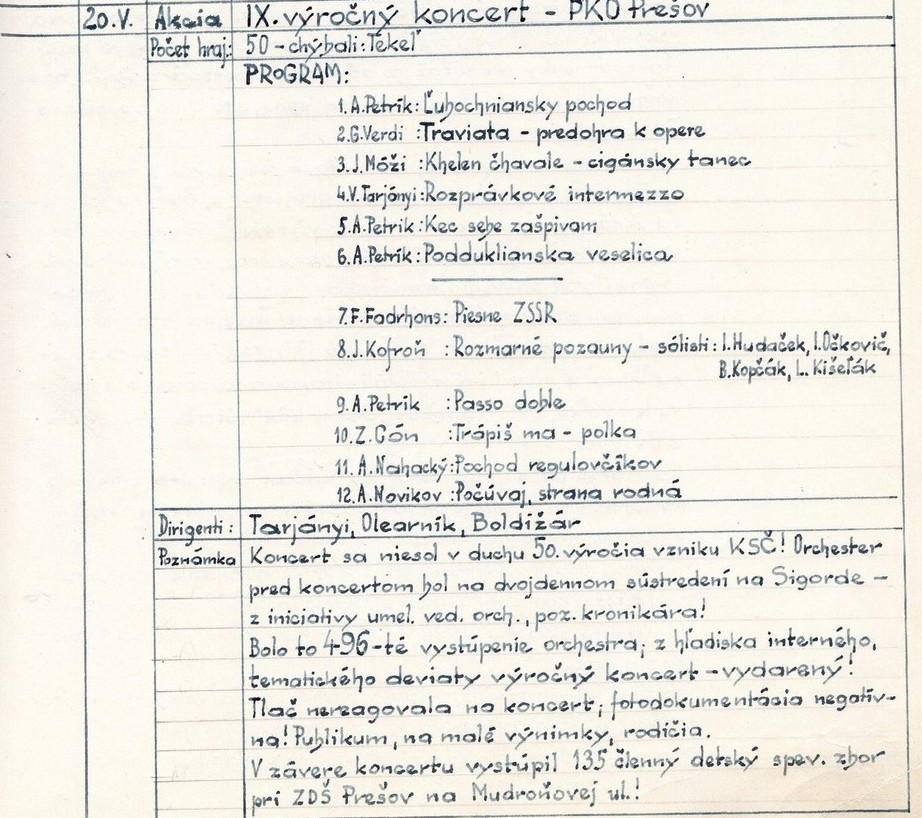 20.V. Akcia IX. výročný koncert - PKO Prešov
Počet hraj.: 50 - chýbali: Tekeľ
PROGRAM:
1. A. Petrik: Ľubochniansky pochod
2. G. Verdi : Traviata - predohra k opere
3. J. Móži : Khelen čhavale - cigánsky tanec
4. V. Tarjányi: Rozprávkové intermezzo
5. A. Petrik: Kec sebe zašpivam
6. A. Petrik: Poddukliänska veselica
7. F. Fadrhons: Piesne ZSSR
8. J. Kofroň : Rozmarné pozauny - sólisti: I. Hudaček, I. Očkovič,
B. Kopčák, L. Kišeľák
9. A. Petrik : Passo doble
10. Z. Gón : Trápiš ma - polka
11. A. Nahacký: Pochod regulovčíkov
12. A. Novikov : Počúvaj, strana rodná
Dirigenti: Tarjányi, Olearník, Boldižár
Poznámka Koncert sa niesol v duchu 50. výročia vzniku KSČ! Orchester
pred koncertom bol na dvojdennom sústredení na Sigorde -
z iniciativy umel. ved. orch., poz. kronikára!
Bolo to 496-té vystúpenie orchestra; z hľadiska interného,
tematického deviaty výročný koncert - vydarený!
Tlač nereagovala na koncert; fotodokumentácia negatív-
na! Publikum, na malé výnimky, rodičia.
V závere koncertu vystúpil 135 členný detský spev. zbor
pri ZDŠ Prešov na Mudroňovej ul.!